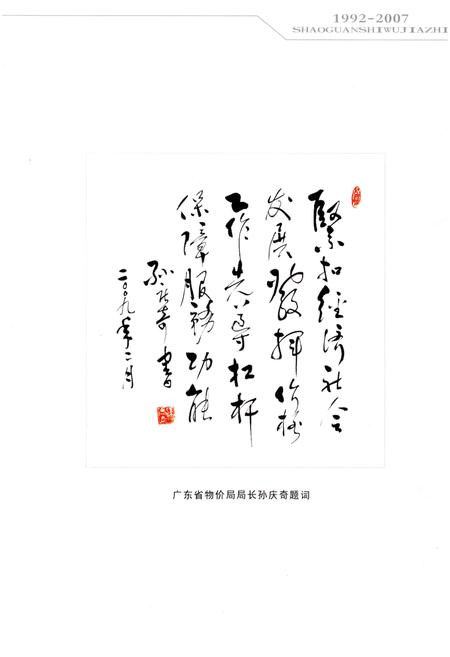 1992-2007
SHAOGUANSHIWUJIAZHI
緊扣經济社会
发展發揮价格
工作先导杠杆
保障服務功能
孙庆奇書
二〇〇九年二月
广东省物价局局长孙庆奇题词